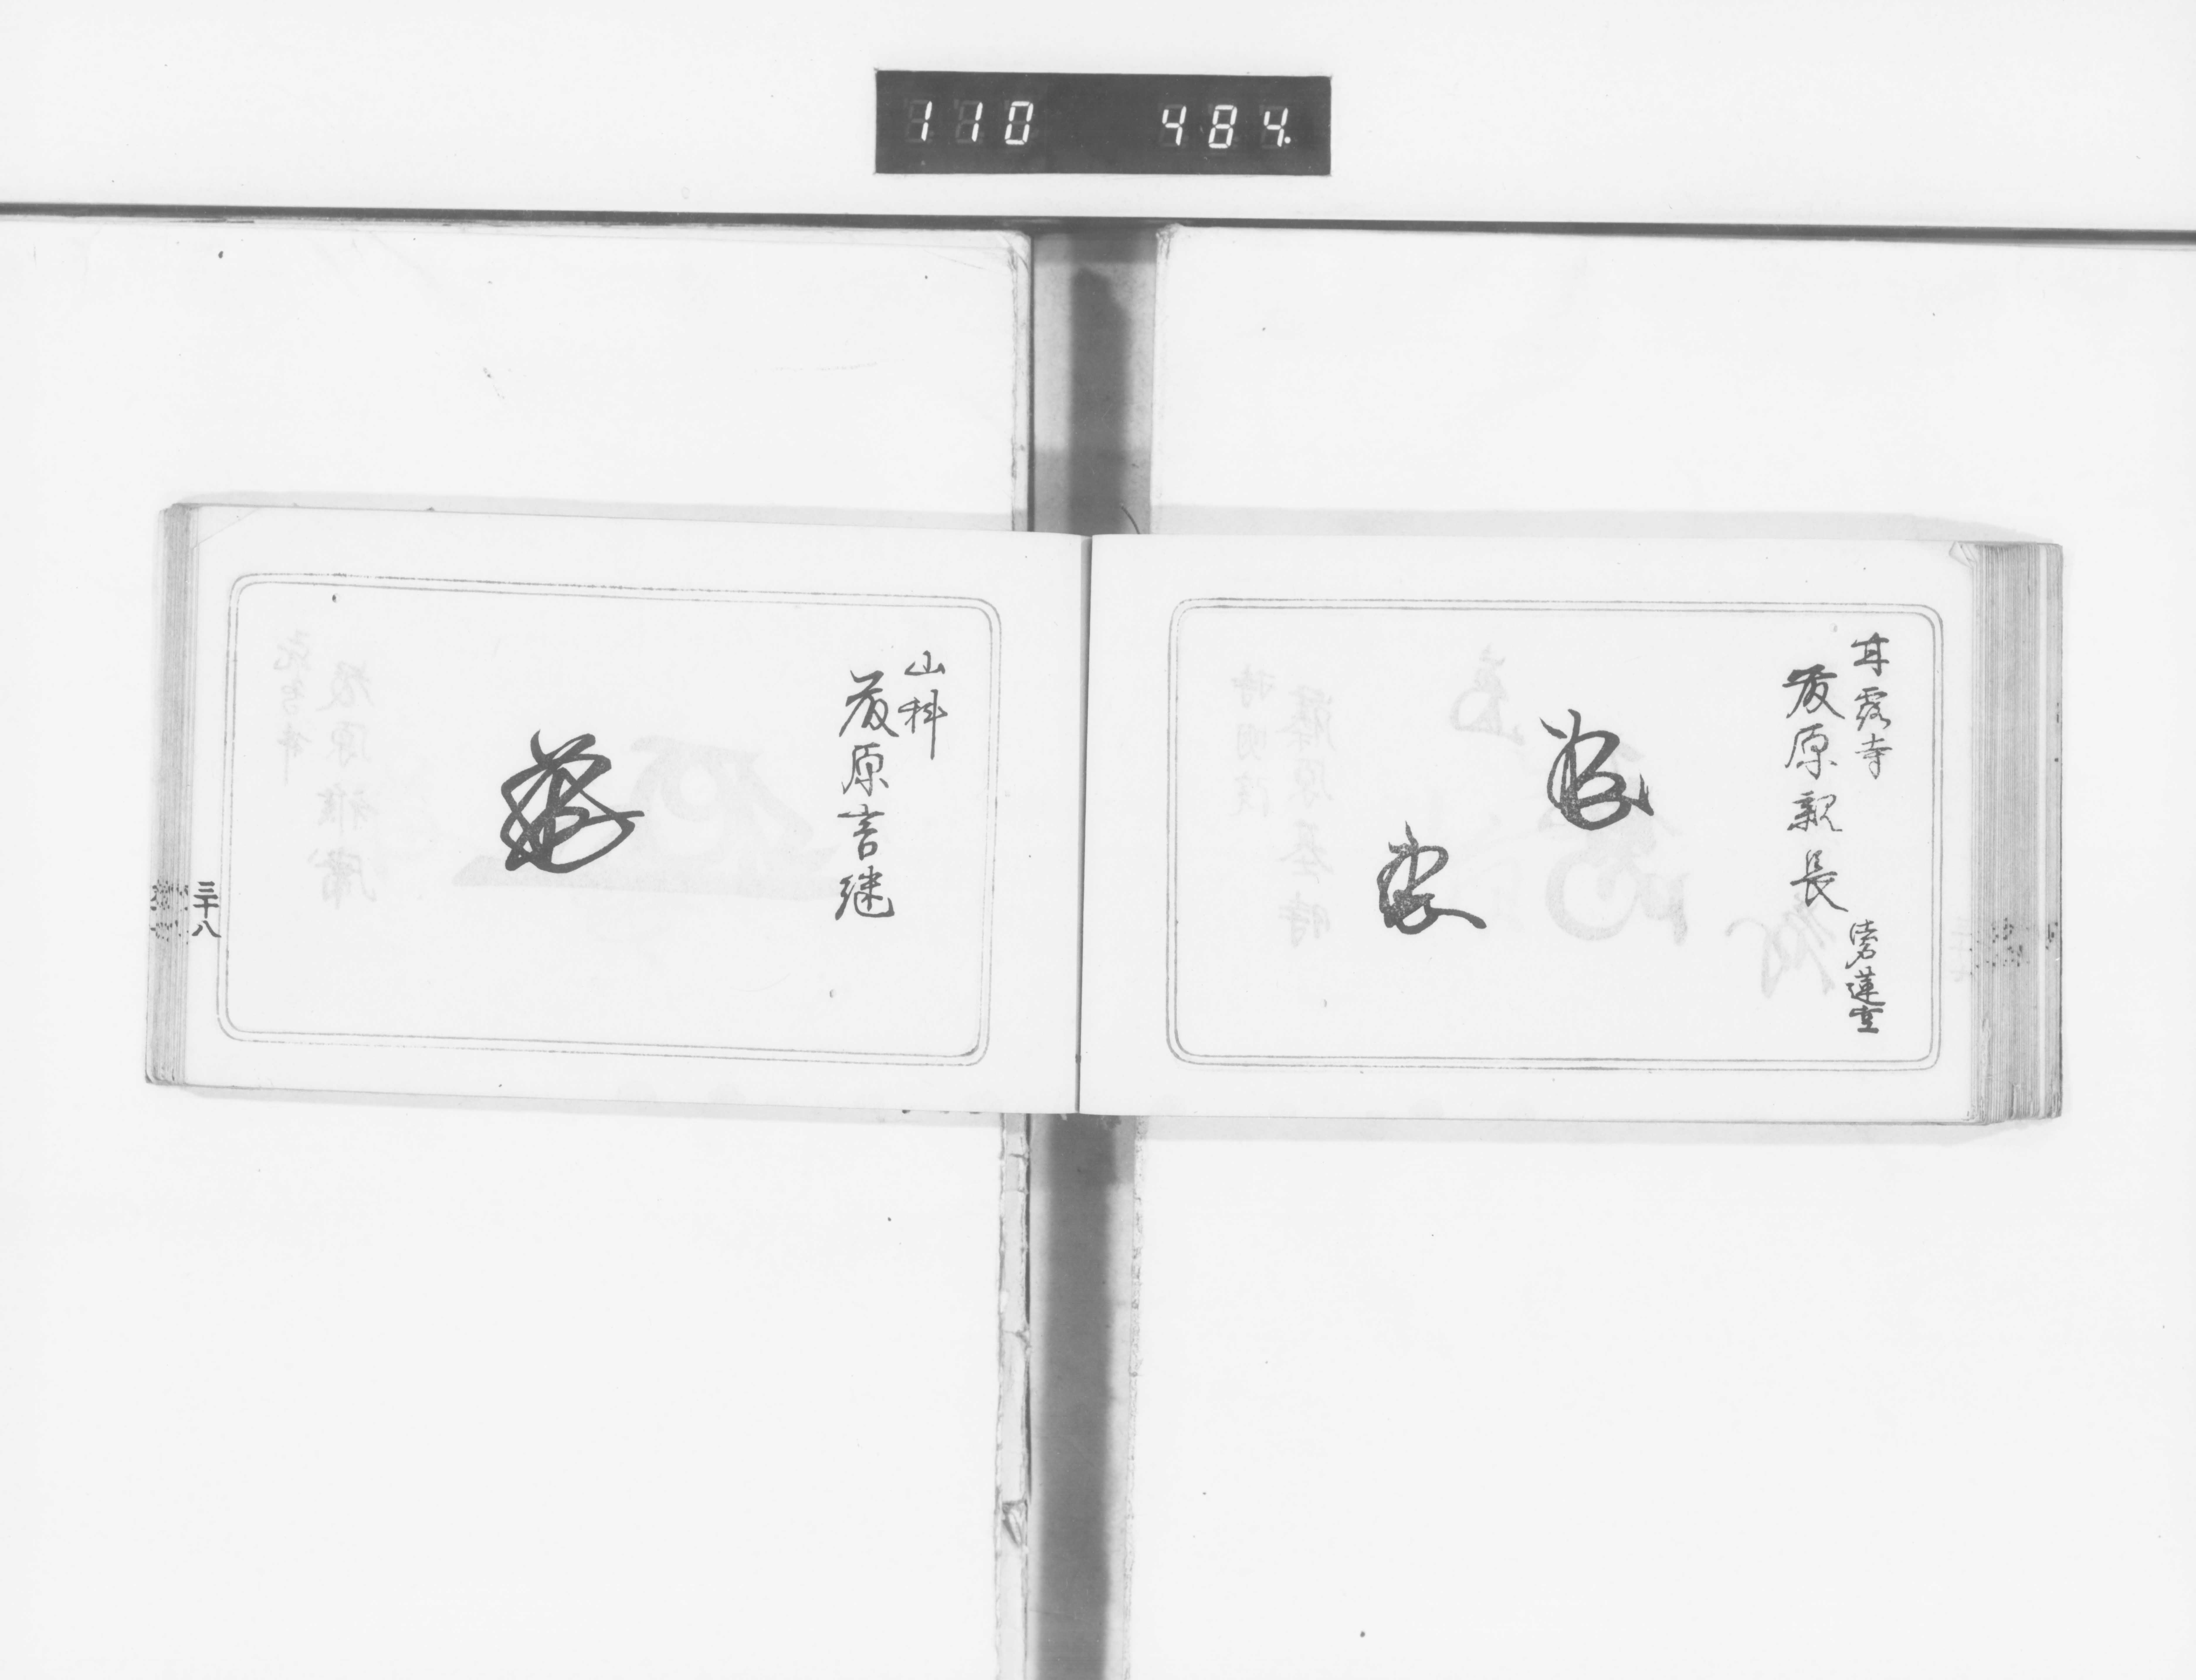 110 484.
甘露寺
藤原親長
蓮空
山科
藤原言継
三十八